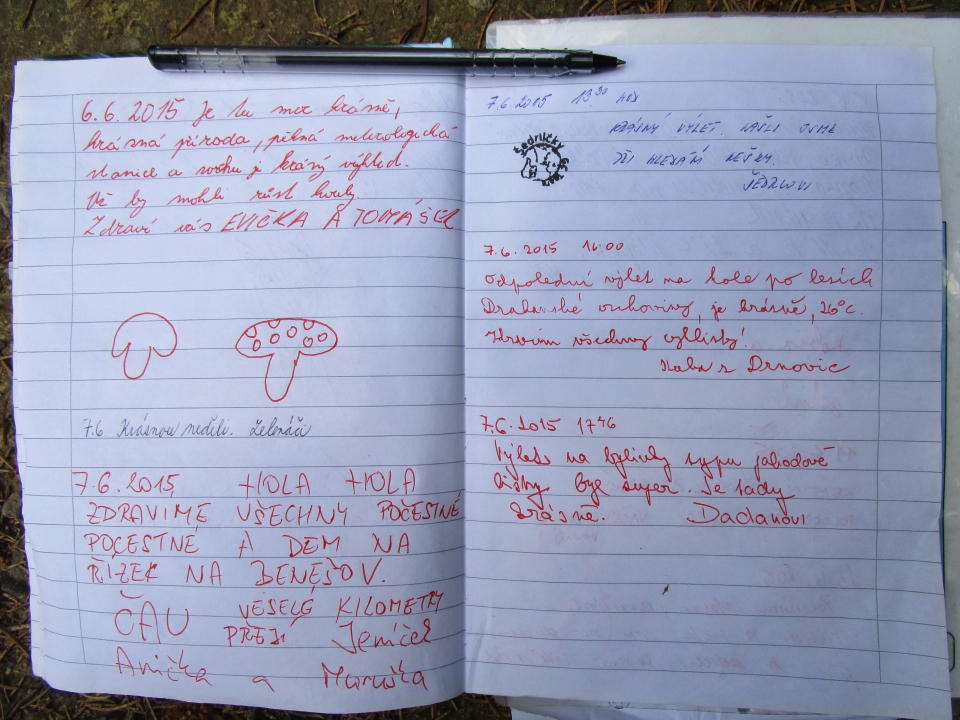 6.6.2015 Je tu moc krásně,
krásná příroda, pěkná meteorologická
stanice a je krásný výhled.
Už by mohli růst houby.
Zdraví vás EVIČKA A TOMÁŠEK
7.6. Krásnou neděli. Zelenáči
7.6.2015 HOLA HOLA
ZDRAVIME VŠECHNY POČESTNÉ
POČESTNÉ A DEM NA
ŘÍZEK NA BENEŠOV.
ČAU VESELÉ KILOMETRY
PŘEJÍ Jeníček
Anička a Maruška
7.6 2015 13 30 HOD
KRÁSNÝ VÝLET. NAŠLI JSME
PŘI HLEDÁNÍ KEŠKY.
7.6.2015 16:00
Odpolední výlet na kole po lesích
Drahanské vrchoviny, je krásně, 26°C.
Zdravím všechny
Kuba z Drnovic
7.6.2015 17 46
Výlet na bylinky typu jahodové
lístky byl super. Je tady
krásně. Dadanovi